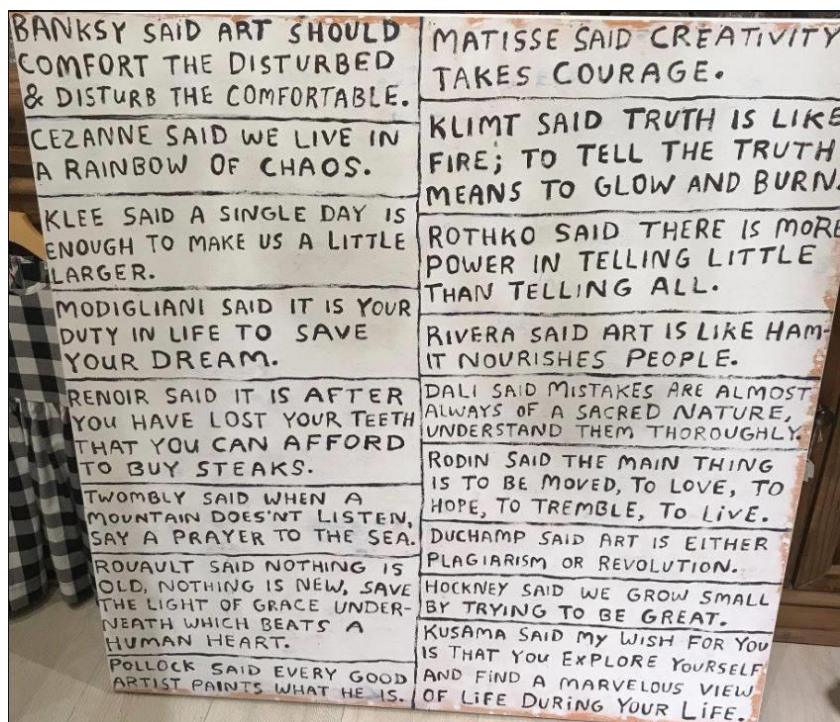 BANKSY SAID ART SHOULD
COMFORT THE DISTURBED
& DISTURB THE COMFORTABLE.
CEZANNE SAID WE LIVE IN
A RAINBOW OF CHAOS.
KLEE SAID A SINGLE DAY IS
ENOUGH TO MAKE US A LITTLE
LARGER.
MODIGLIANI SAID IT IS YOUR
DUTY IN LIFE TO SAVE
YOUR DREAM.
RENOIR SAID IT IS AFTER
YOU HAVE LOST YOUR TEETH
THAT YOU CAN AFFORD
TO BUY STEAKS.
TWOMBLY SAID WHEN A
MOUNTAIN DOES'NT LISTEN,
SAY A PRAYER TO THE SEA.
ROUAULT SAID NOTHING IS
OLD, NOTHING IS NEW, SAVE
THE LIGHT OF GRACE UNDER-
NEATH WHICH BEATS A
HUMAN HEART.
POLLOCK SAID EVERY GOOD
ARTIST PAINTS WHAT HE IS.
MATISSE SAID CREATIVITY
TAKES COURAGE.
KLIMT SAID TRUTH IS LIKE
FIRE; TO TELL THE TRUTH
MEANS TO GLOW AND BURN.
ROTHKO SAID THERE IS MORE
POWER IN TELLING LITTLE
THAN TELLING ALL.
RIVERA SAID ART IS LIKE HAM-
IT NOURISHES PEOPLE.
DALI SAID MISTAKES ARE ALMOST
ALWAYS OF A SACRED NATURE,
UNDERSTAND THEM THOROUGHLY.
RODIN SAID THE MAIN THING
IS TO BE MOVED, TO LOVE, TO
HOPE, TO TREMBLE, TO LIVE.
DUCHAMP SAID ART IS EITHER
PLAGIARISM OR REVOLUTION.
HOCKNEY SAID WE GROW SMALL
BY TRYING TO BE GREAT.
KUSAMA SAID MY WISH FOR YOU
IS THAT YOU EXPLORE YOURSELF
AND FIND A MARVELOUS VIEW
OF LIFE DURING YOUR LIFE.